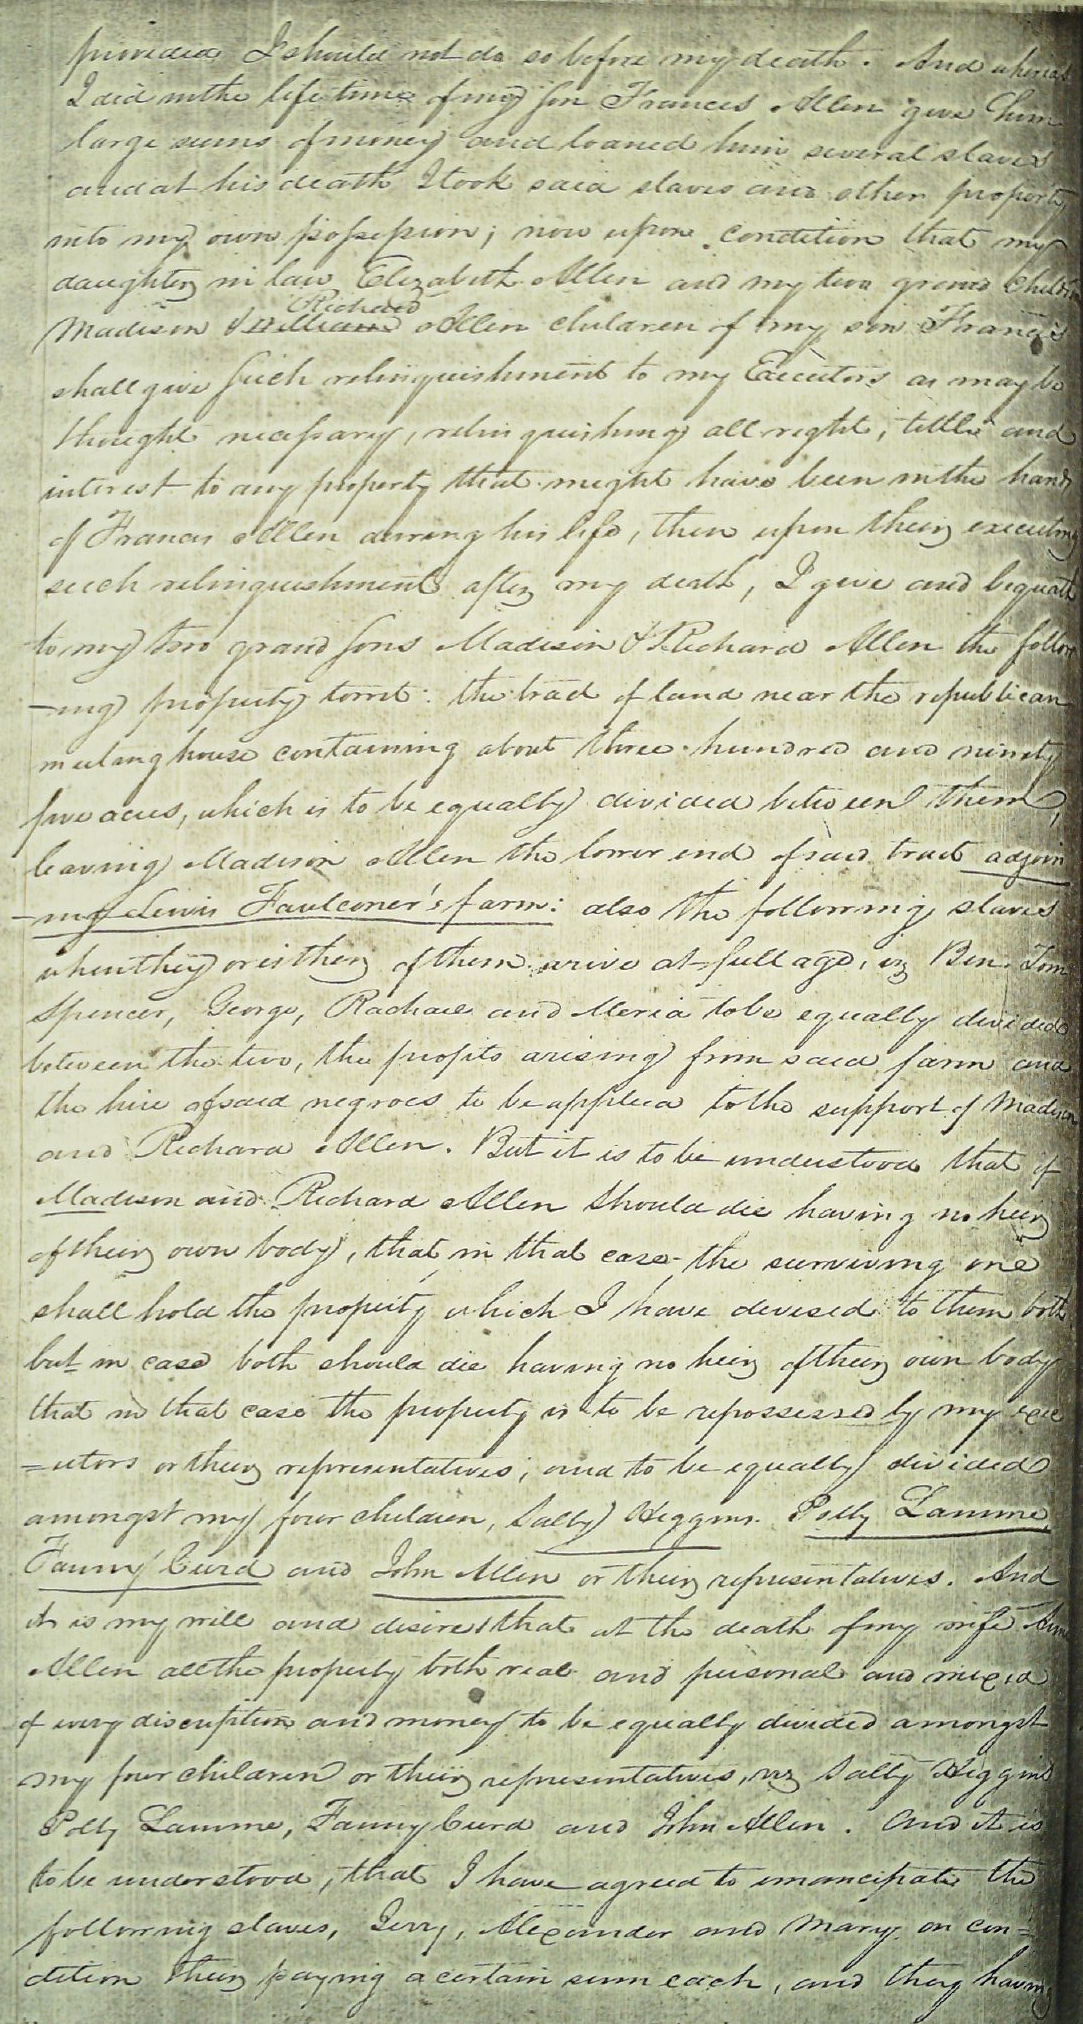 provided I should not do so before my death. And whereas
I did in the life time of my son Frances Allen give him
large sums of money and loaned him several slaves
and at his death I took said slaves and other property
into my own possession; now upon condition that my
daughter in law Elizabeth Allen and my two grand children
Richard
Madison & William Allen children of my son Francis
shall give such relinquishment to my Executors as may be
thought necessary, relinquishing all right, tittle and
interest to any property that might have been in the hands
of Francis Allen during his life, then upon their executing
such relinquishment after my death, I give and bequath
to my two grand sons Madison & Richard Allen the follow
-ing property towit: the tract of land near the republican
meeting house containing about three hundred and ninety
five acres, which is to be equally divided between them,
leaving Madison Allen the lower end of said tract adjoin
-ing Lewis Faulconer's farm: also the following slaves
when they or either of them arive at full age, viz Ben Tom
Spencer, George, Rachael and Meria to be equally divided
between the two, the profits arising from said farm and
the hire of said negroes to be applied to the support of Madison
and Richard Allen. But it is to be understood that if
Madison and Richard Allen should die having no heir
of their own body, that in that case the surviving one
shall hold the property which I have devised to them both
but in case both should die having no heir of their own body
that in that case the property is to be repossessed by my exe
=utors or their representatives, and to be equally divided
amongst my four children, Sally Higgins Polly Lamme,
Fanny Curd and John Allen or their representatives. And
it is my will and desire that at the death of my wife Ann
Allen all the property both real and personal and mixed
of every discription and money to be equally divided amongst
my four children or their representatives, viz Sally Higgins
Polly Lamme, Fanny Curd and John Allen. And it is
to be understood, that I have agreed to emancipate the
following slaves, Jerry, Alexander and Mary on con=
dition their paying a certain sum each, and they having